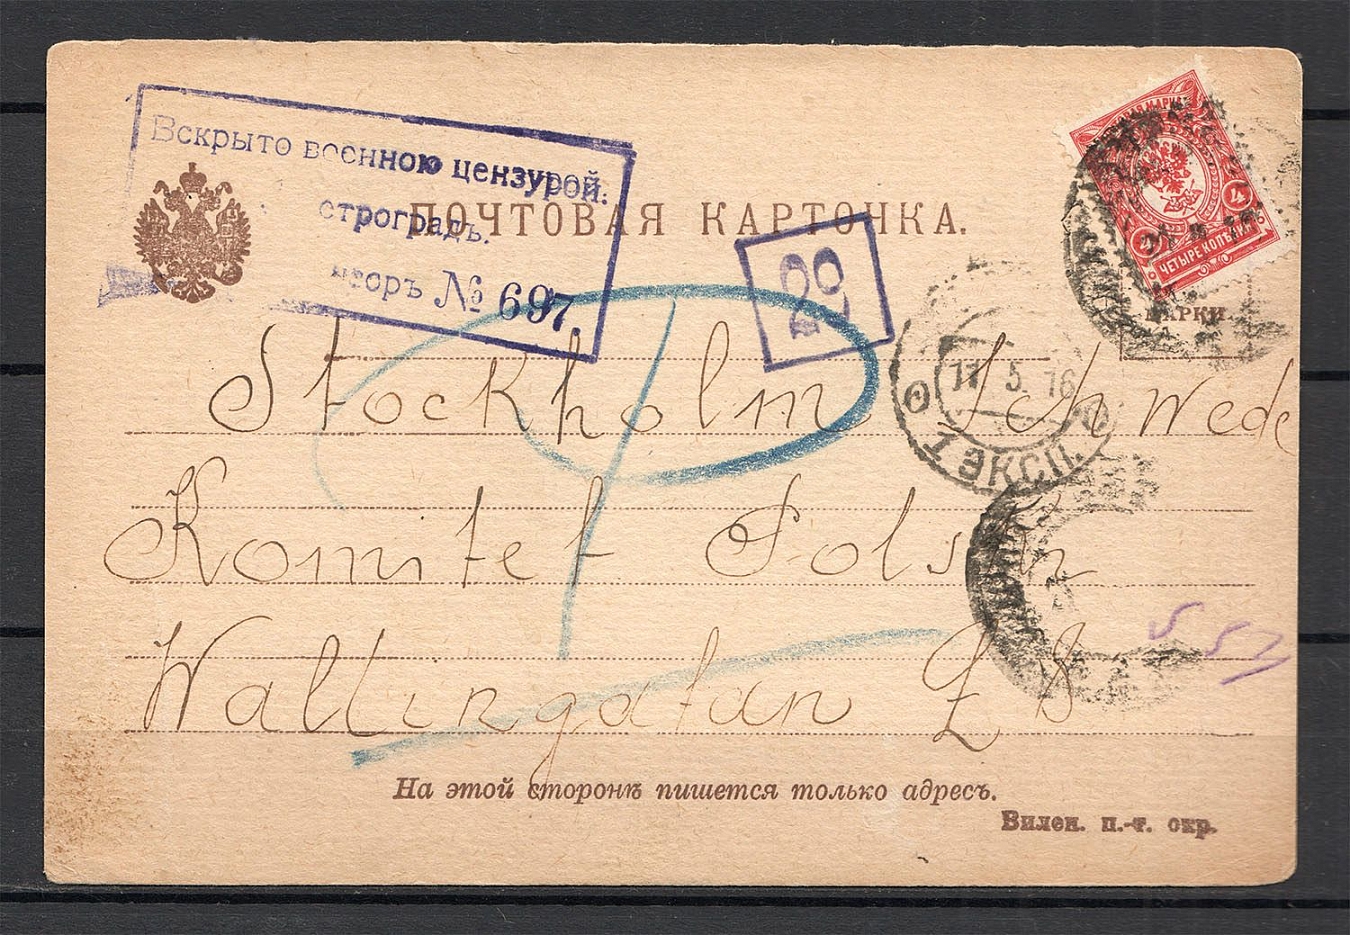 Вскрыто военною цензурой.
строградъ.
№ 697
ПОЧТОВАЯ КАРТОЧКА.
29
МАРКИ.
ЧЕТЫРЕ КОПѢЙКИ
4
4
11 5. 16
1 ЭКСП.
Stockholm Schwede
Komitet Polsk
Wallingatan
На этой сторонѣ пишется только адресъ.
Вилен. п.-т. окр.